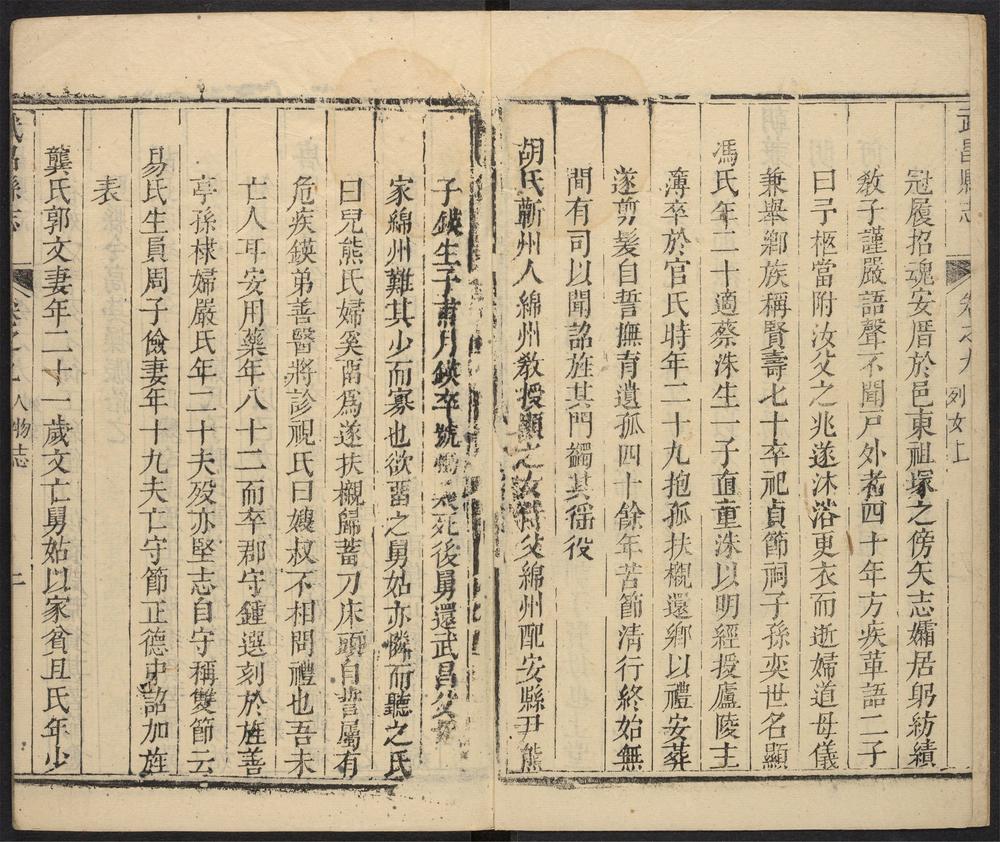 武昌縣志 卷之九 列女上
冠履招魂安厝於邑東祖塚之傍矢志孀居躬紡績
敎子謹嚴語聲不聞戸外者四十年方疾革語二子
曰予柩當附汝父之兆遂沐浴更衣而逝婦道母儀
兼舉鄉族稱賢壽七十卒祀貞節祠子孫奕世名顯
馮氏年二十適蔡洙生一子直童洙以明經授廬陵主
薄卒於官氏時年二十九抱孤扶櫬還鄉以禮安葬
遂剪髮自誓撫育遺孤四十餘年苦節清行終始無
間有司以聞詔旌其門蠲其徭役
胡氏蘄州人綿州敎授顯之女侍父綿州配安縣尹熊
子鍈生子肅月鍈卒號慟死後舅還武昌父
家綿州難其少而寡也欲畱之舅姑亦憐而聽之氏
曰兒熊氏婦奚畱爲遂扶櫬歸蓄刀床頭自誓屬有
危疾鍈弟善醫將診視氏曰嫂叔不相問禮也吾未
亡人耳安用藥年八十二而卒郡守鍾選刻於旌善
亭孫棣婦嚴氏年二十夫殁亦堅志自守稱雙節云
易氏生員周子儉妻年十九夫亡守節正德中詔加旌
表
龔氏郭文妻年二十一歲文亡舅姑以家貧且氏年少
武昌縣志 卷之九 人物志 二